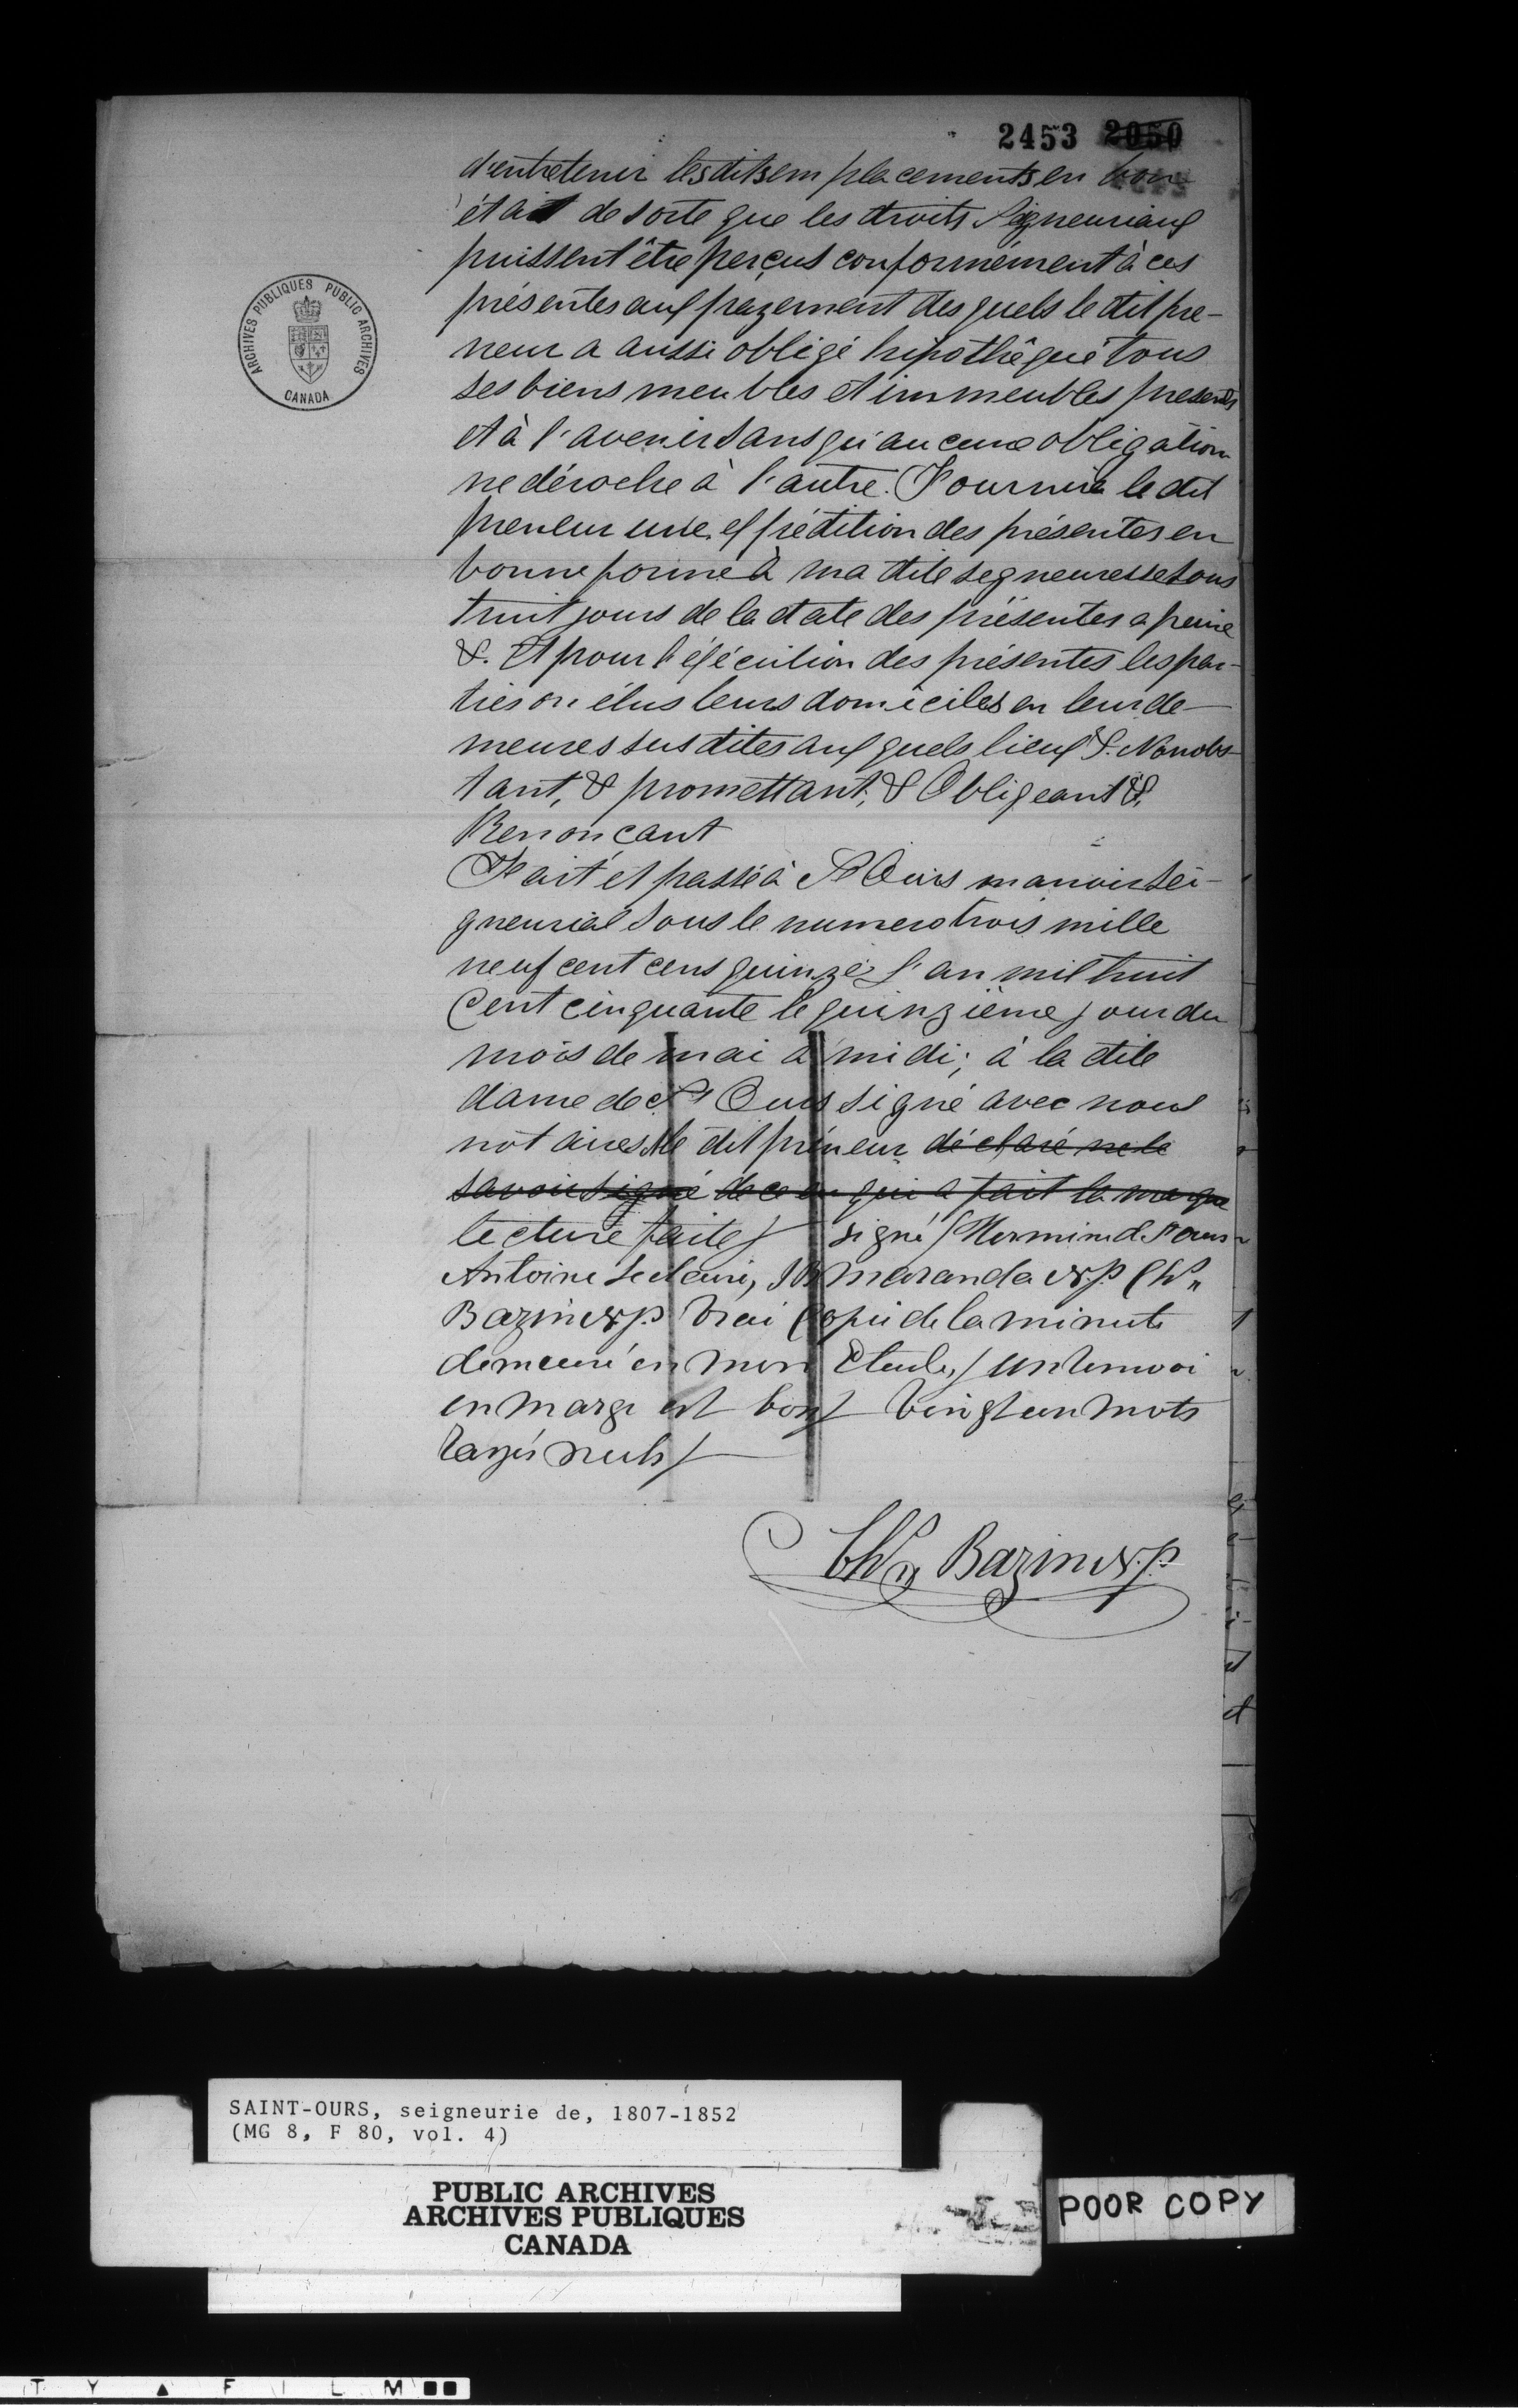 2453 2050
d'entretenir lesdits emplacements en bon
état de sorte que les droits Seigneuriaux
puissent être perçus conformément à ces
présentes aux payement desquels le dit pre-
neur a aussi obligé hipothêqué tous
ses biens meubles et immeubles presents
et à l'avenir sans qu'aucune obligation
ne déroche à l'autre. Fournira le dit
preneur une expédition des présentes en
bonne forme à ma dite segneuresse sous
huit jours de la date des présentes a peine
&. Et pour l'éxécution des présentes les par-
ties on élus leurs domiciles en leur de-
meures susdites auxquels lieux &. Nonobs-
tant, & promettant, & Obligeant &.
Renonçant
Fait et passé à St Ours manoir Sei-
gneurial sous le numero trois mille
neuf cent cens quinze l'an mil huit
Cent cinquante le quinzième jour du
mois de mai a midi; à la dite
dame de St Ours signé avec nous
notaires, le dit préneur déclaré ne le
savoir signé de ce qui a fait la marque
lecture faite/ signé/ Hermine d. St ours
Antoine Leclaire, JB Maranda N.P. Chs
Bazin N.P. Vrai Copie de la minute
demeuré en mon Etude,/ un renvoi
en marge est bon/ Vingt un mots
rayés nuls/
Chs Bazin N.P.
ARCHIVES PUBLIQUES PUBLIC ARCHIVES
CANADA
SAINT-OURS, seigneurie de, 1807-1852
(MG 8, F 80, vol. 4)
PUBLIC ARCHIVES
ARCHIVES PUBLIQUES
CANADA
POOR COPY
T Y ▲ F I L M